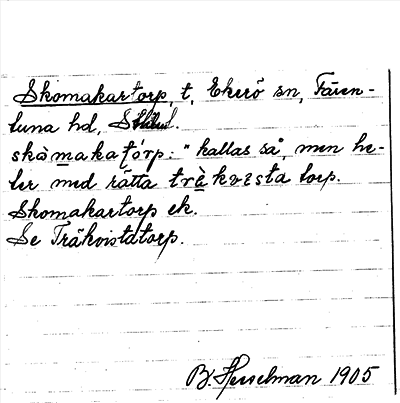 Skomakartorp, t, Ekerö sn, Fären-
tuna hd, Sthlm l.
skòmakatórp: "kallas så, men he-
ter med rätta trèkvista torp.
Skomakartorp ek.
Se Träkvistatorp.
B. Hesselman 1905